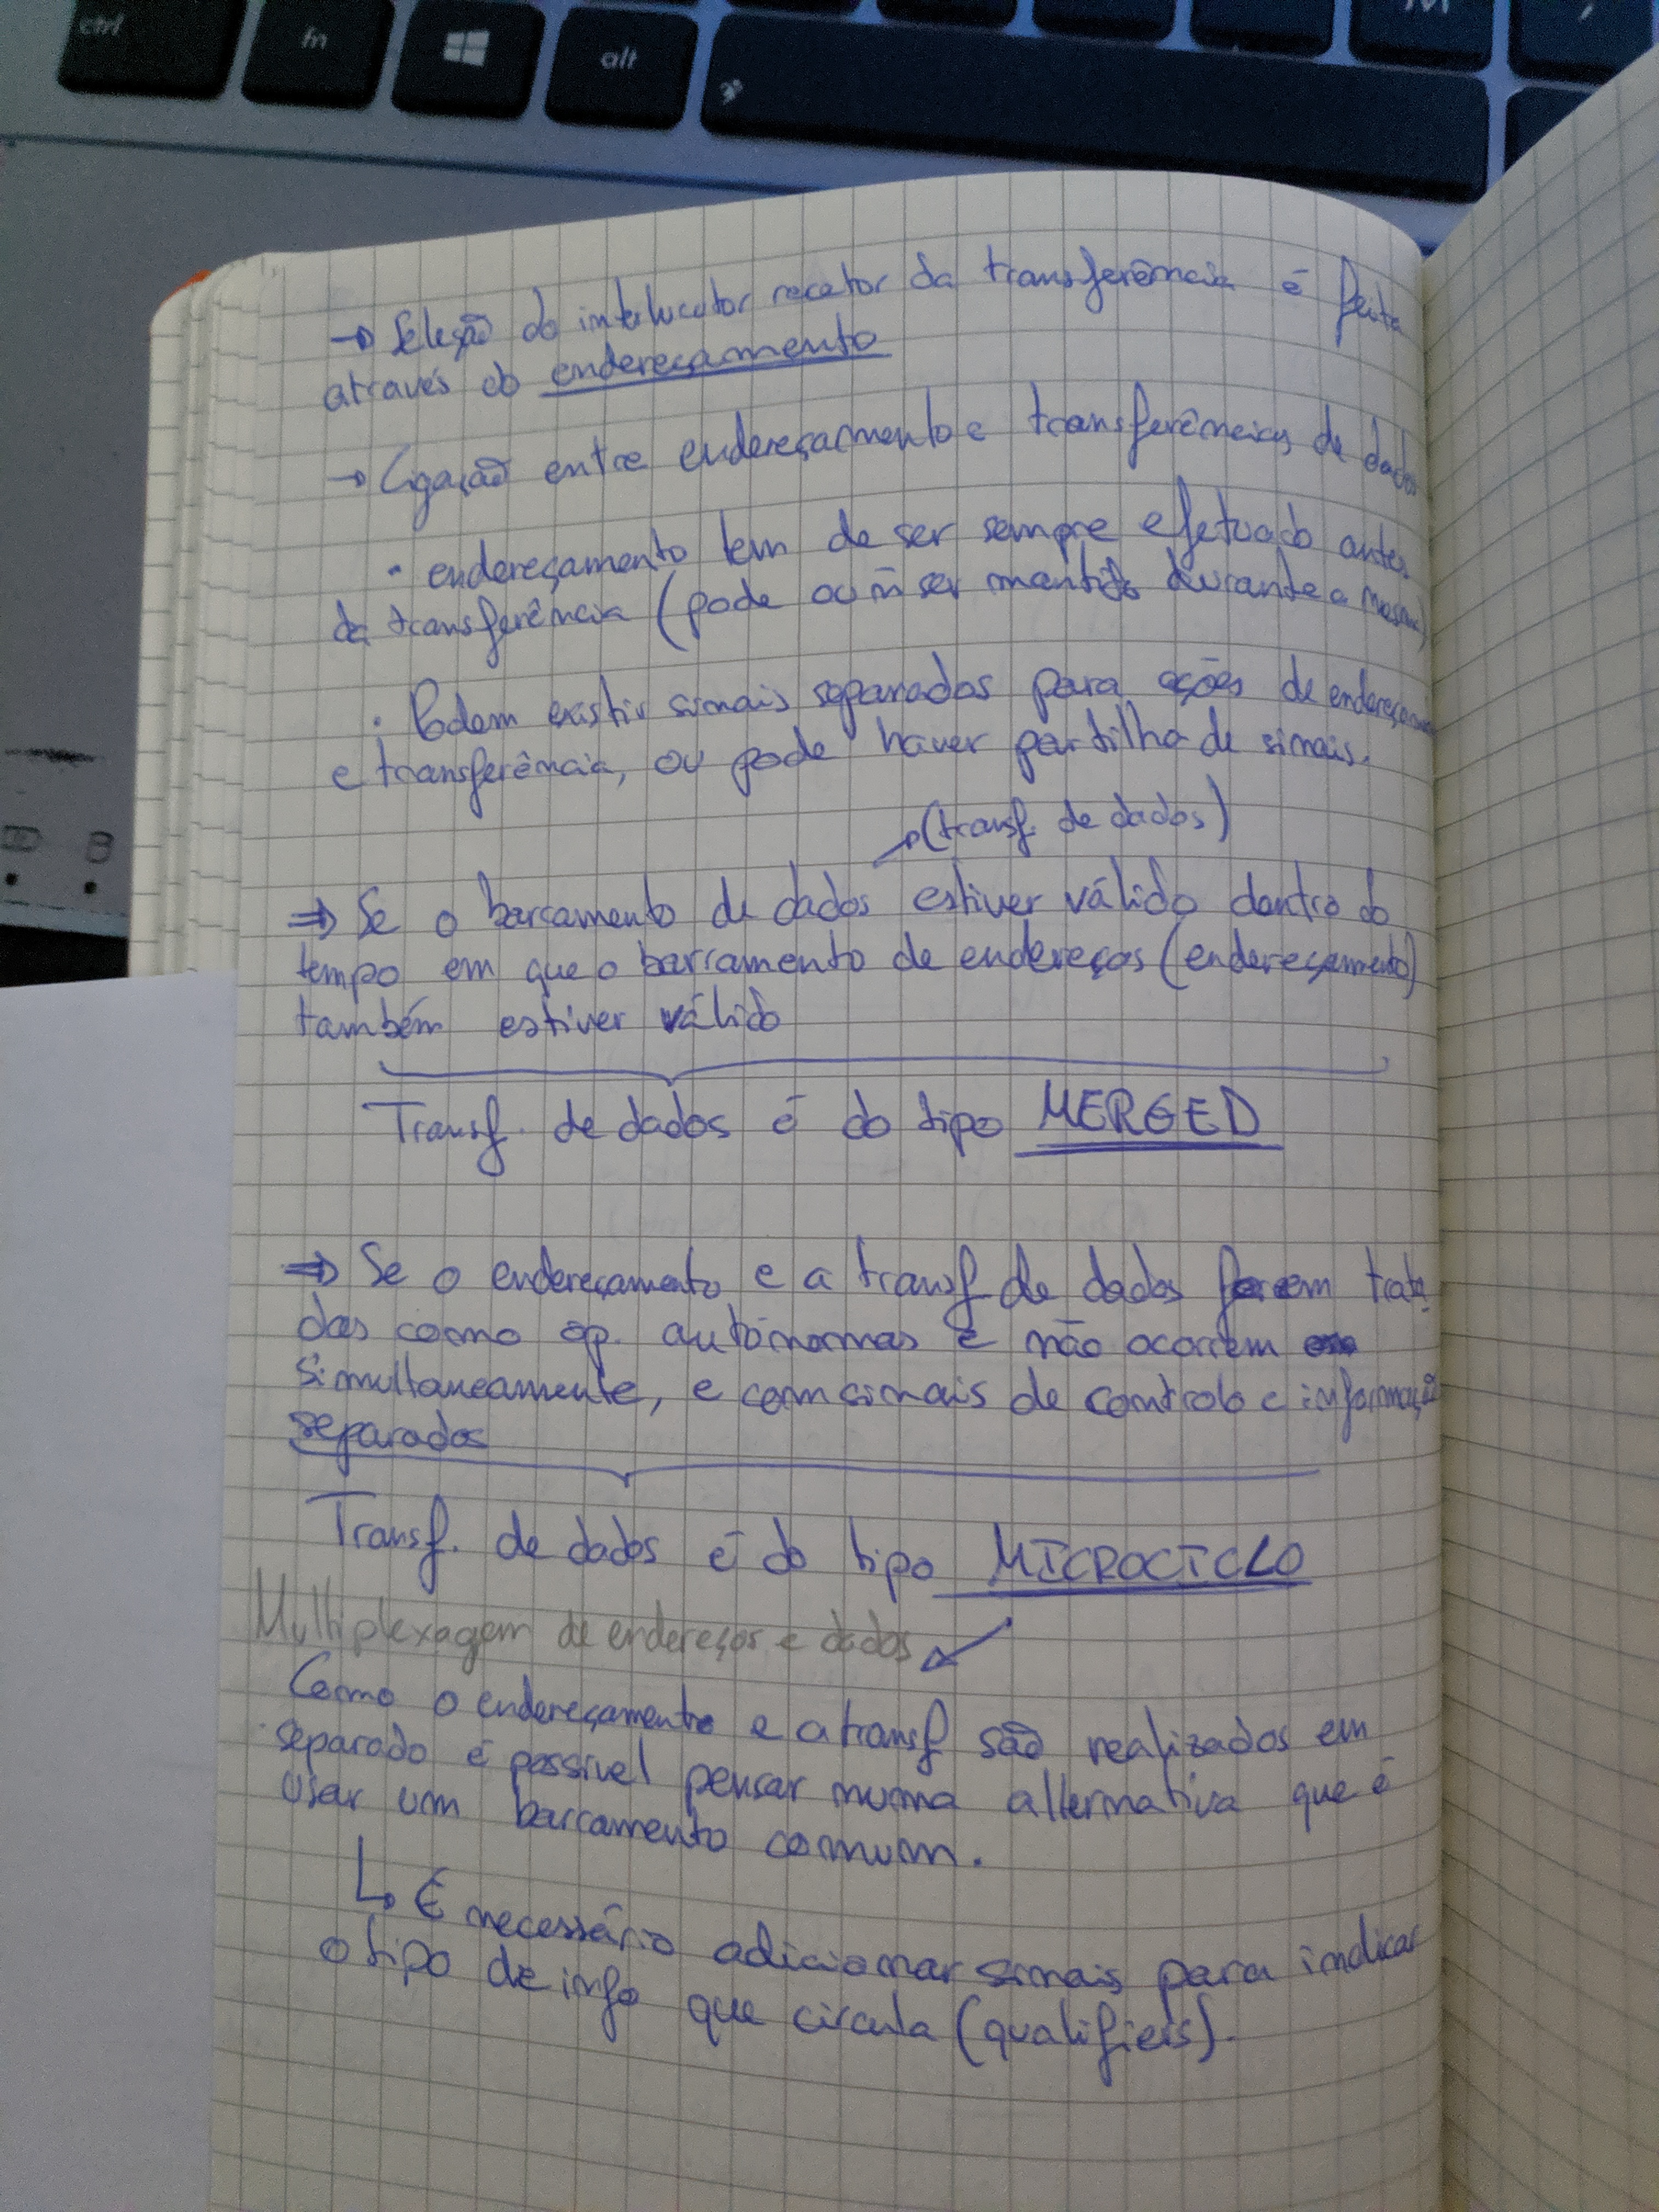 ctrl
fn
alt
M
,
→ Seleção do interlucutor recetor da transferência é feita
através do endereçamento
→ Ligação entre endereçamento e transferências de dados
• endereçamento tem de ser sempre efetuado antes
da transferência (pode ou ñ ser mantido durante a mesma)
• Podem existir sinais separados para ações de endereçamento
e transferência, ou pode haver partilha de sinais.
→ (transf. de dados)
⇒ Se o barramento de dados estiver válido dentro do
tempo em que o barramento de endereços (endereçamento)
também estiver válido
Transf. de dados é do tipo MERGED
⇒ Se o endereçamento e a transf de dados forem trata-
das como op. autónomas e não ocorrem
simultaneamente, e com sinais de controlo e informação
separados
Transf. de dados é do tipo MICROCICLO
Multiplexagem de endereços e dados
Como o endereçamento e a transf são realizados em
separado é possível pensar numa alternativa que é
usar um barramento comum.
↳ É necessário adicionar sinais para indicar
o tipo de info que circula (qualifiers).